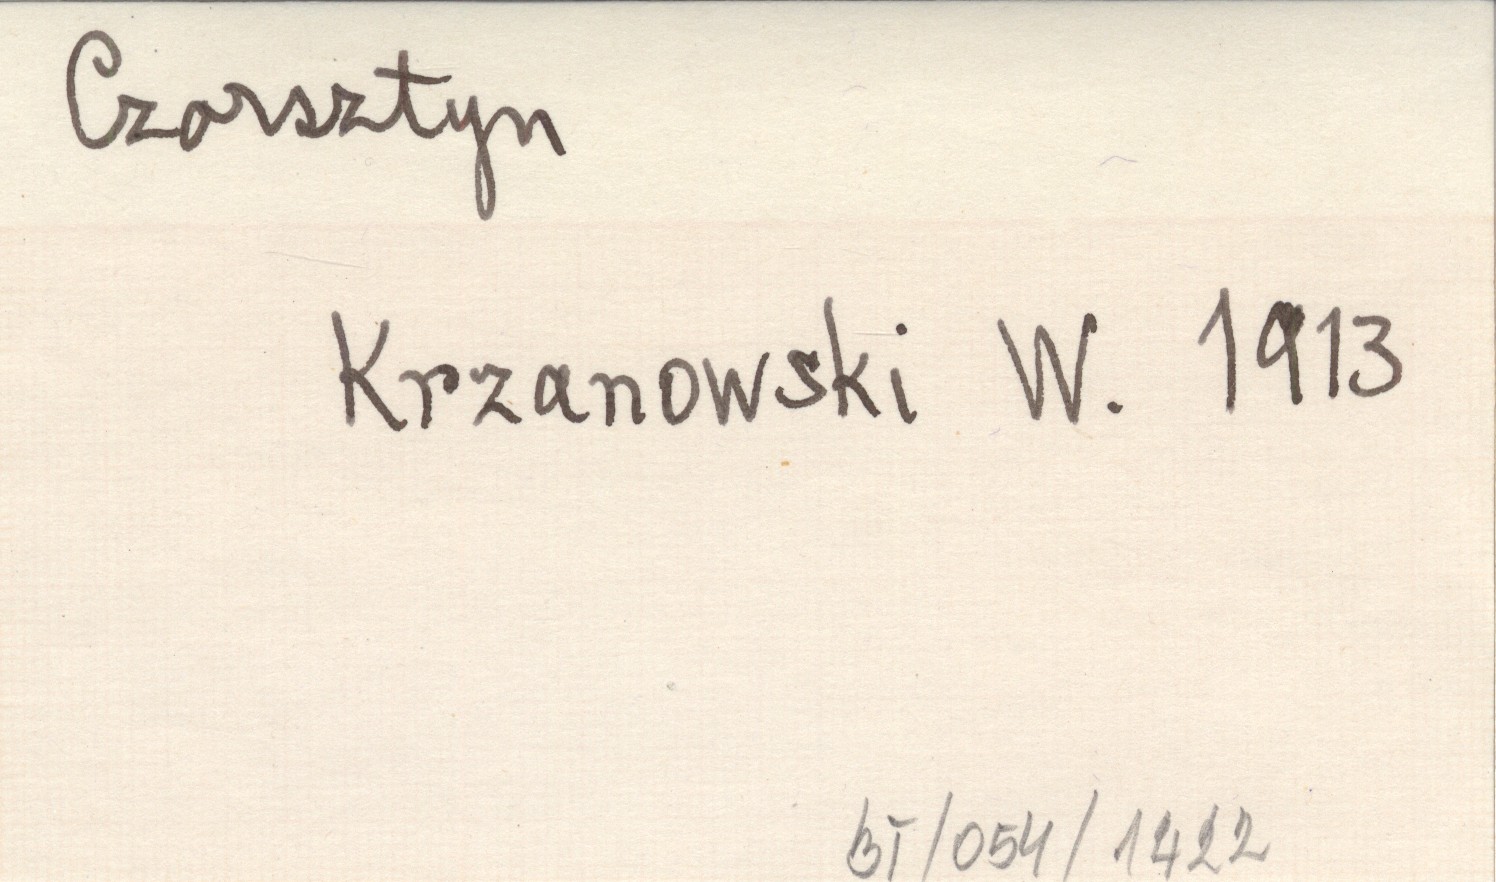 Czorsztyn
Krzanowski W. 1913
BT/054/1422